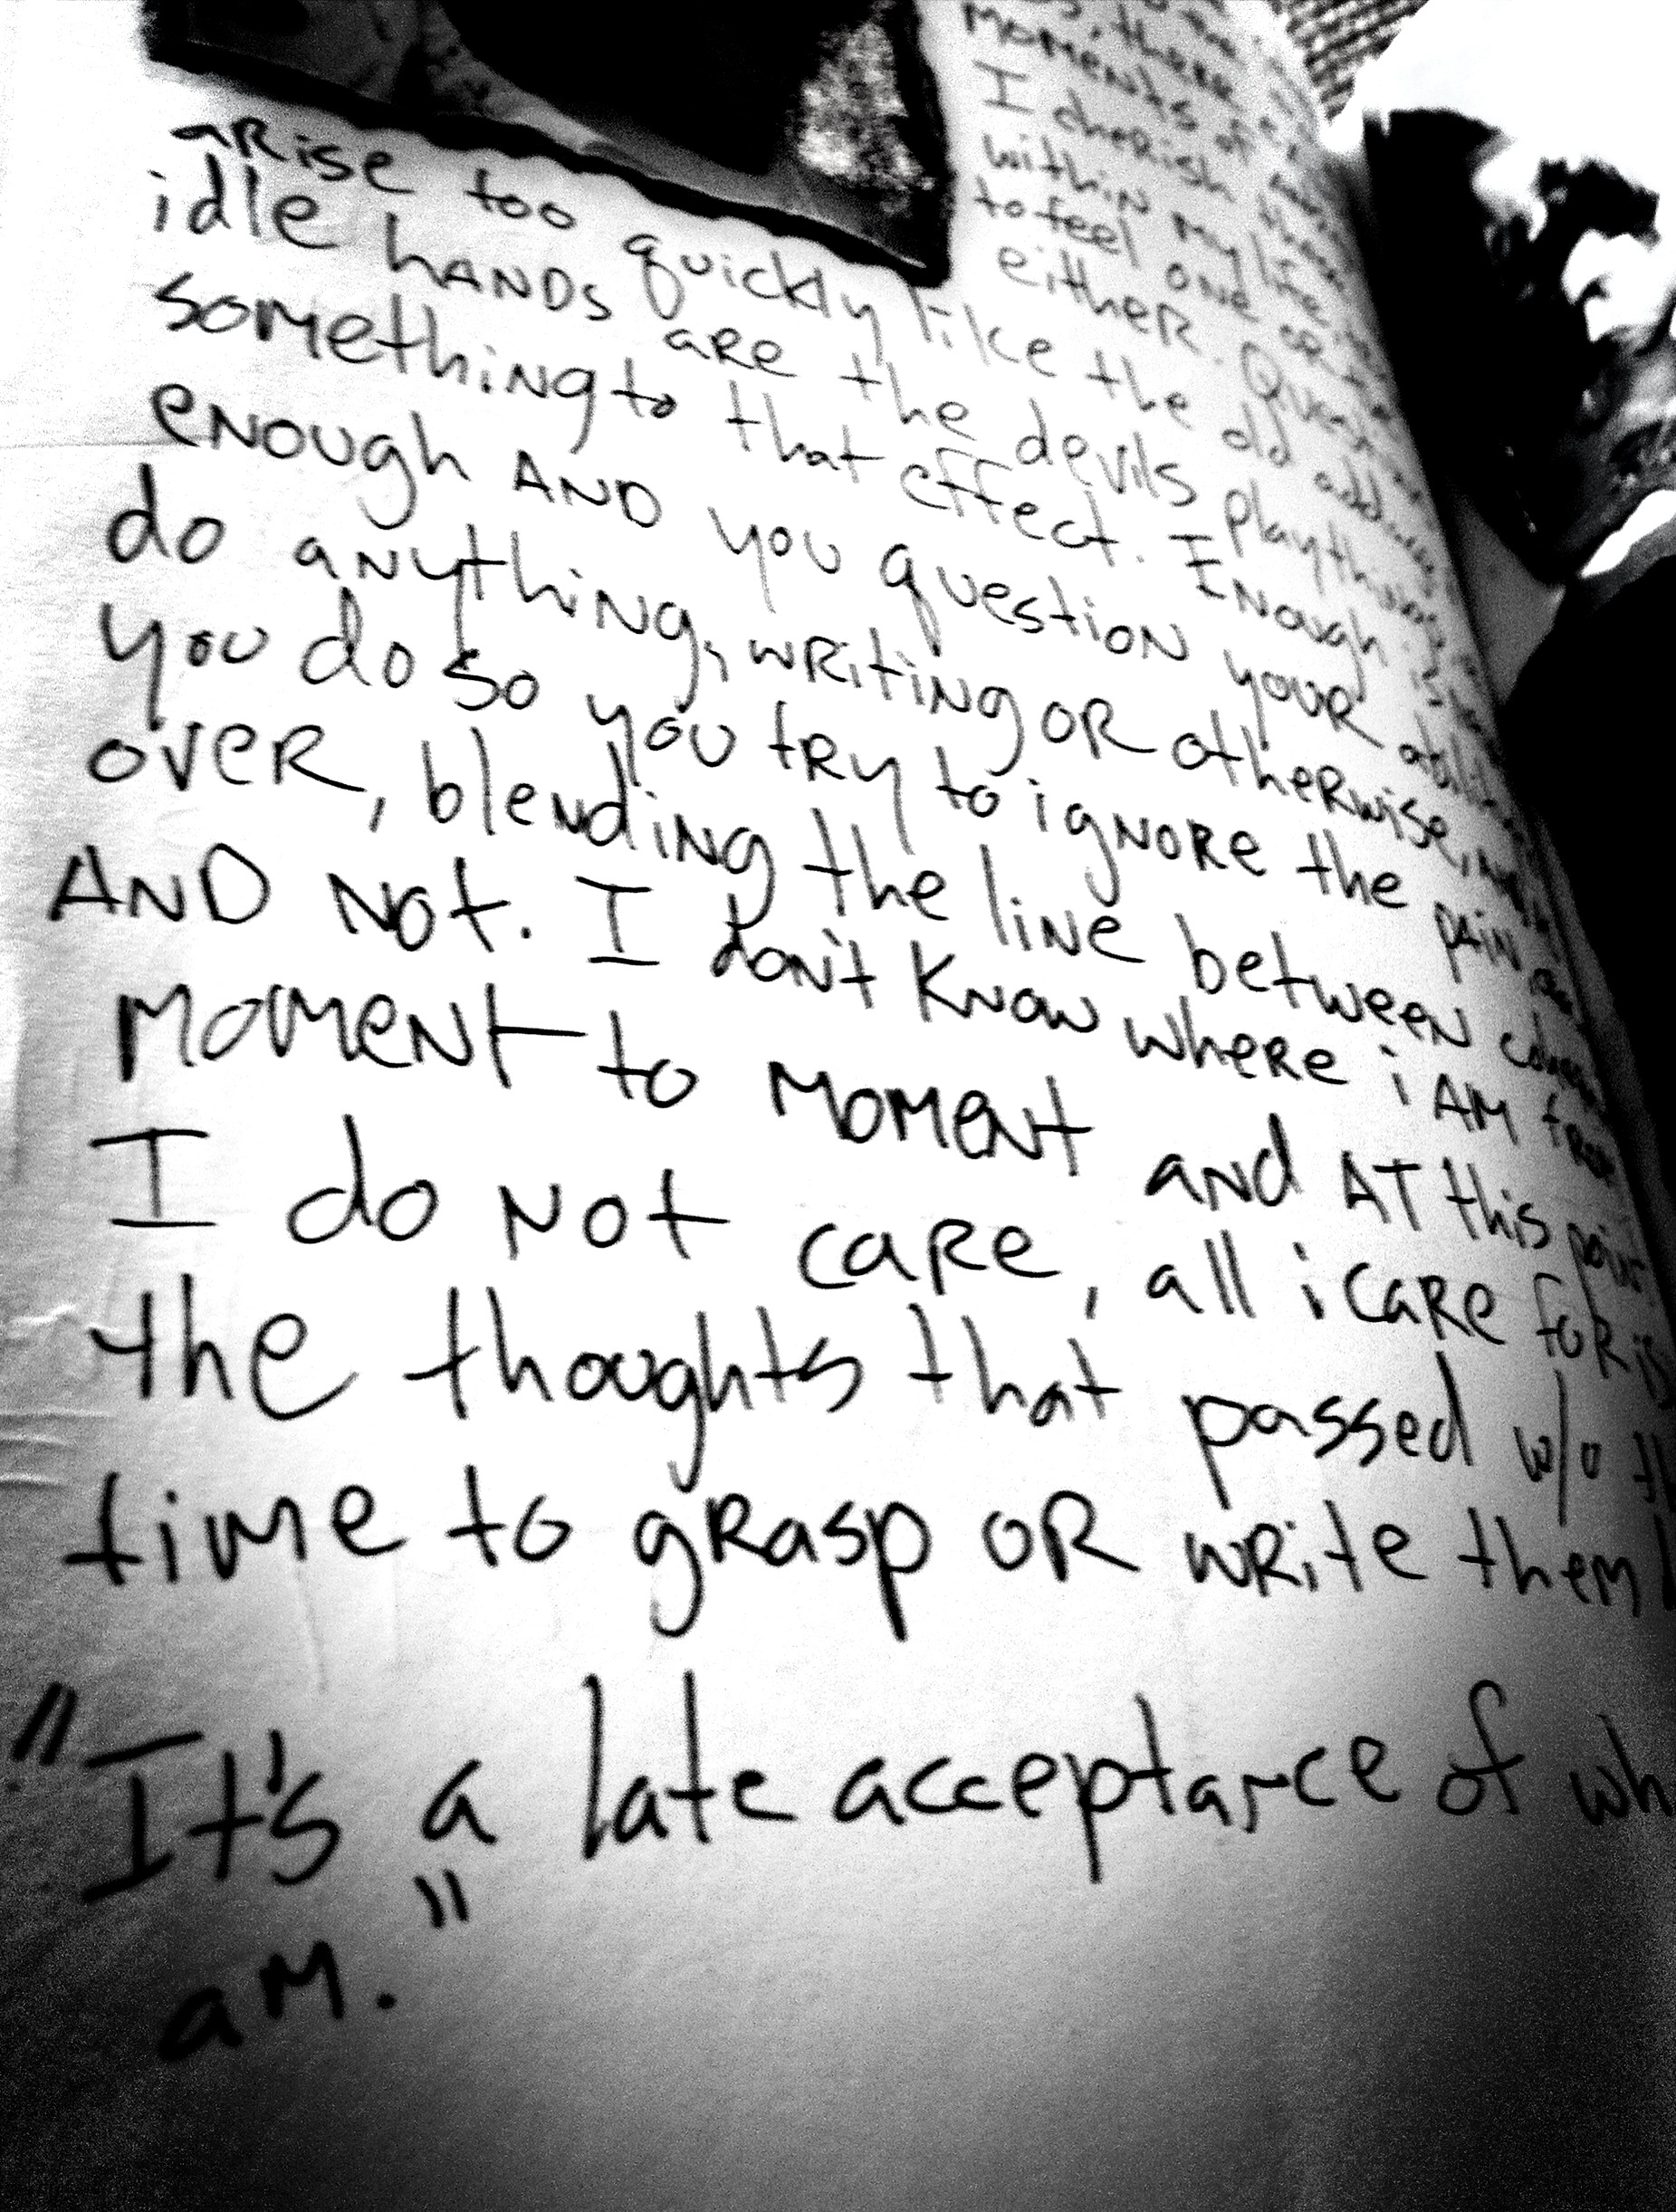 there
moments of
I cherish them
within my life
to feel one or
either. Quest
arise too quickly like the old
idle hands are the devils playthings
something to that effect. Enough is
enough and you question your
do anything, writing or otherwise,
you do so you try to ignore the pain
over, blending the line between
and not. I don't know where i am from
moment to moment and at this point
I do not care, all i care for is
the thoughts that passed w/o
time to grasp or write them
"It's a late acceptance of
am."